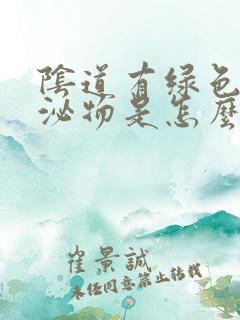 陰道有綠色
泌物是怎麼
崔景誠
未經同意禁止轉載